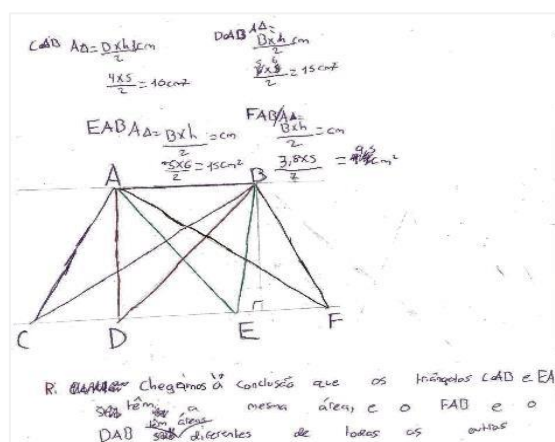 CAB AΔ= bxh cm
2
4x5 = 10cm²
2
DAB AΔ=
Bxh cm
2
= 15cm²
2
EAB AΔ= Bxh = cm
2
5x6 = 15cm²
2
FAB AΔ=
Bxh = cm
2
3,8x5 = 9,5 cm²
A B
C D E F
R: Chegámos à conclusão que os triângulos CAB e EA
têm a mesma área, e o FAB e o
DAB têm áreas diferentes de todas as outras